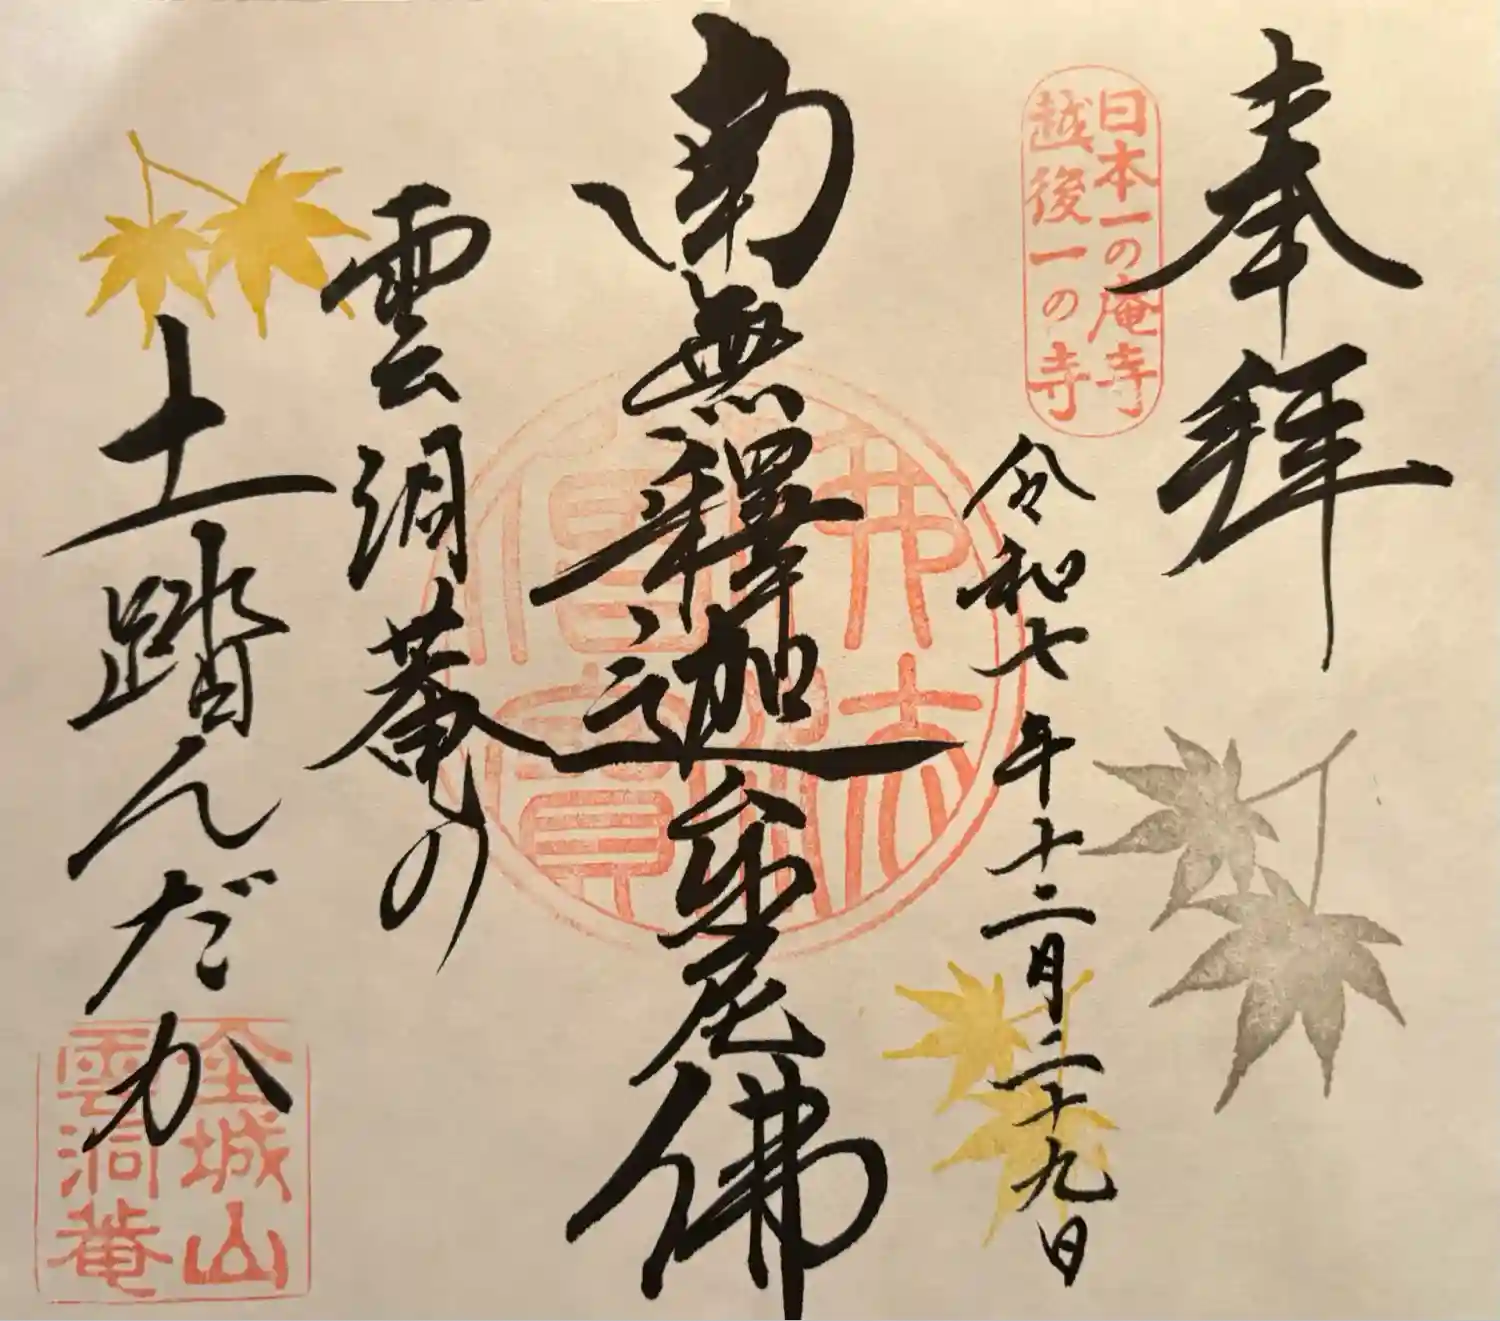 奉拝
日本一の庵寺
越後一の寺
令和七年十二月二十九日
南無釋迦牟尼佛
佛法僧寳
雲洞菴の
土踏んだか
金城山
雲洞菴